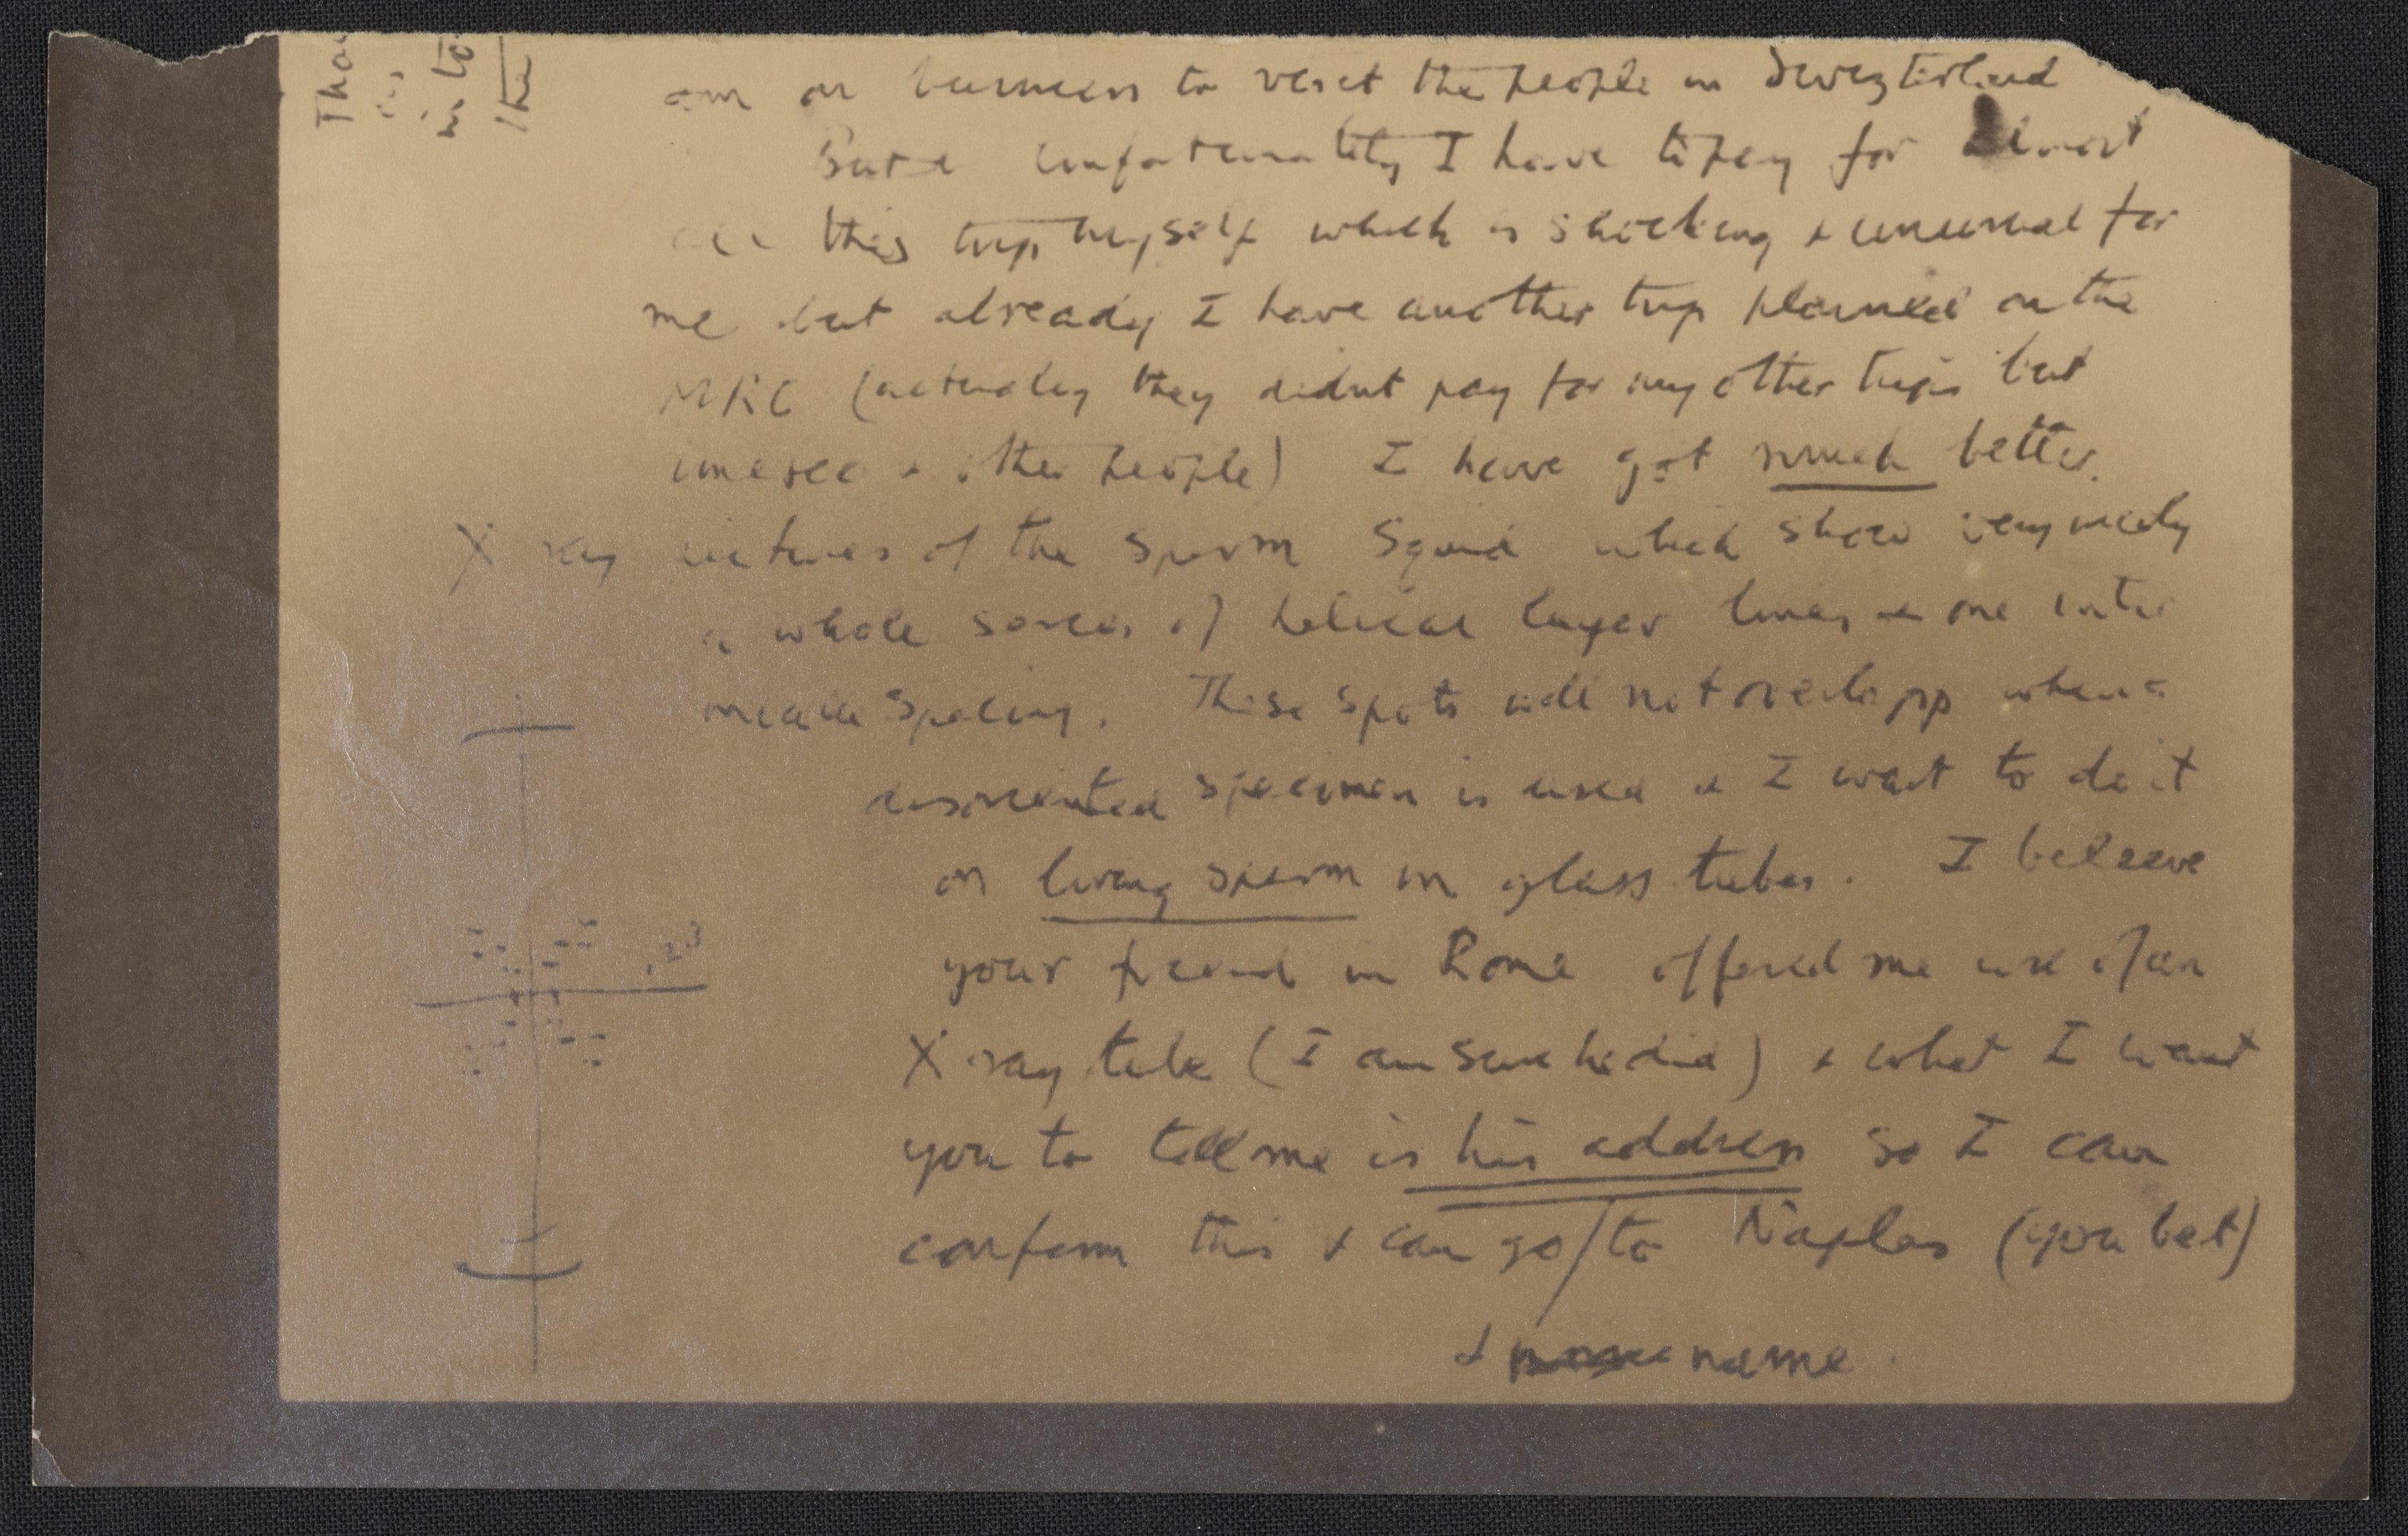 Thou
in to
the
am on business to visit the people in Swizterland
But unfortunately I have to pay for almost
all this trip myself which is shocking + unusual for
me but already I have another trip planned on the
MRC (actually they didnt pay for my other trips but
unesco + other people) I have got much better
X ray pictures of the sperm Squid which show very nicely
a whole series of helical layer lines + one inter
helix spacing. These spots will not overlapp when a
disoriented specimen is used + I want to do it
on living sperm in glass tubes. I beleeve
your friend in Rome offered me use of an
1 2 3
X ray tube (I am sure he did) + what I want
you to tell me is his address so I can
confirm this + can go to Naples (you bet)
+ name